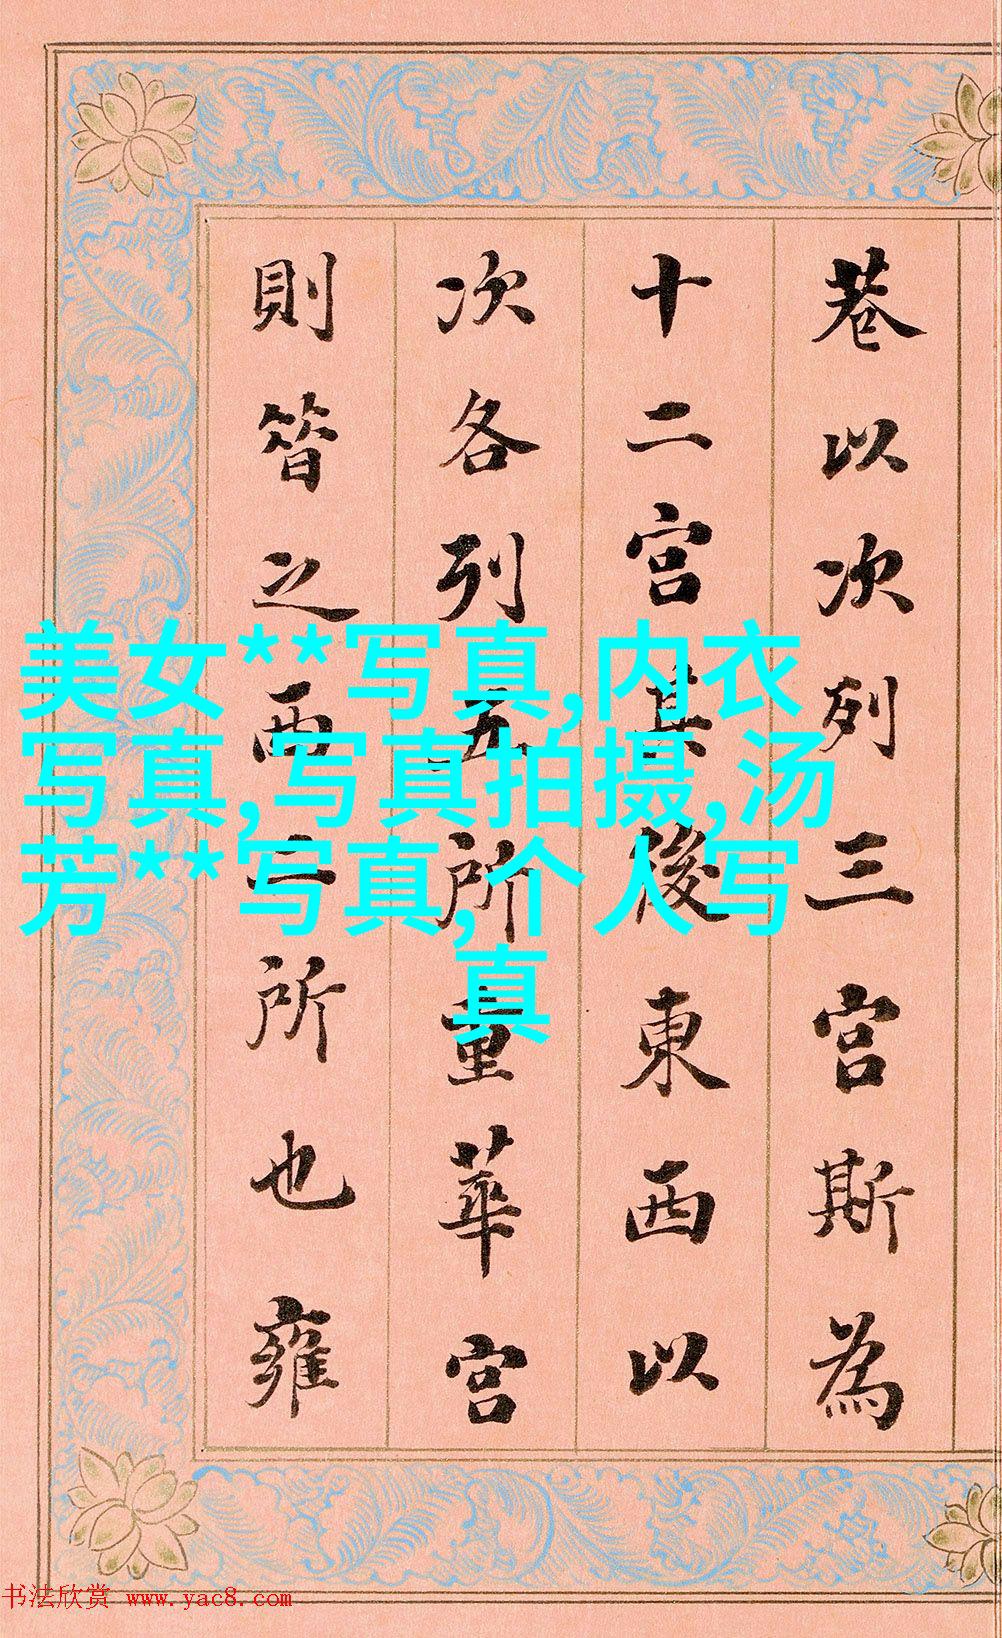 巷以次列三宫斯為
十二宫其後東西以
次各列五所重華宫
則昔之西二所也雍
美女**写真,内衣
写真,写真拍摄,汤
芳**写真,个人写
真
书法欣赏 www.yac8.com